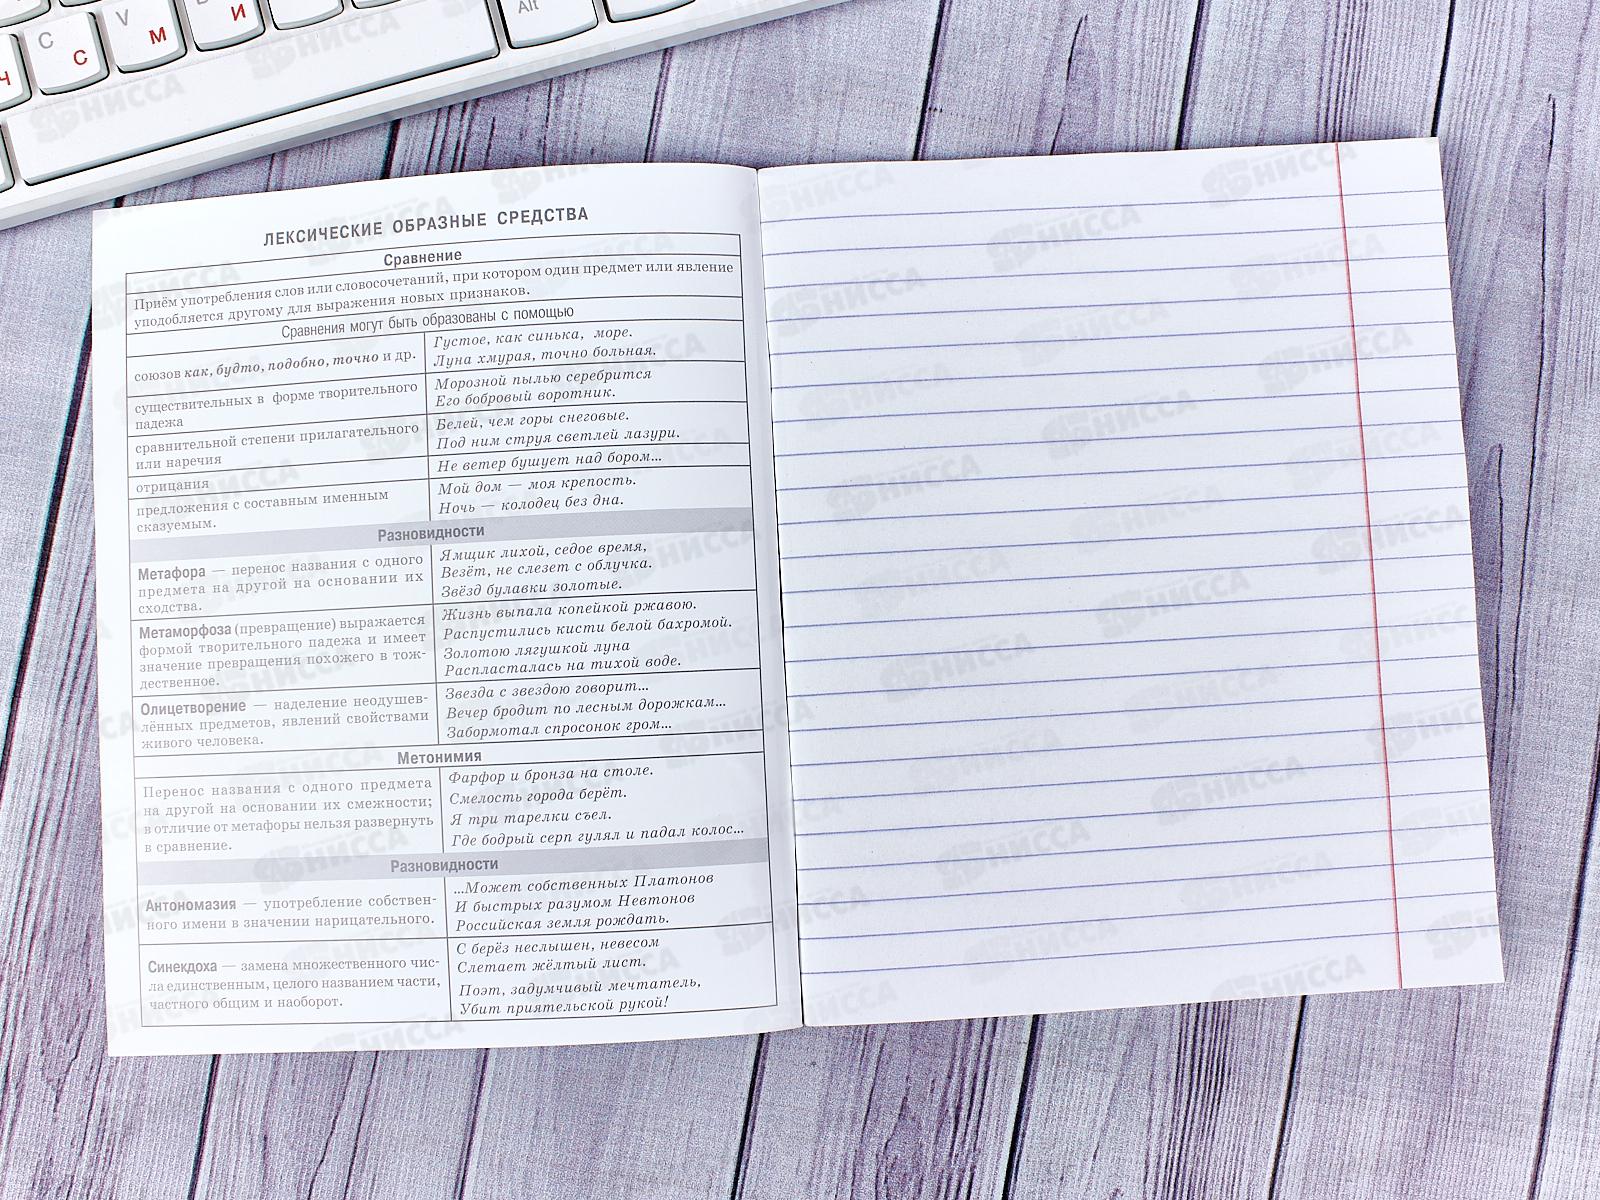 V
И
Alt
C
М
С
Ч
ЛЕКСИЧЕСКИЕ ОБРАЗНЫЕ СРЕДСТВА
Сравнение
Приём употребления слов или словосочетаний, при котором один предмет или явление
уподобляется другому для выражения новых признаков.
Сравнения могут быть образованы с помощью
союзов как, будто, подобно, точно и др.
Густое, как синька, море.
Луна хмурая, точно больная.
существительных в форме творительного
падежа
Морозной пылью серебрится
Его бобровый воротник.
сравнительной степени прилагательного
или наречия
Белей, чем горы снеговые.
Под ним струя светлей лазури.
отрицания
Не ветер бушует над бором...
предложения с составным именным
сказуемым.
Мой дом — моя крепость.
Ночь — колодец без дна.
Разновидности
Метафора — перенос названия с одного
предмета на другой на основании их
сходства.
Ямщик лихой, седое время,
Везёт, не слезет с облучка.
Звёзд булавки золотые.
Метаморфоза (превращение) выражается
формой творительного падежа и имеет
значение превращения похожего в тож-
дественное.
Жизнь выпала копейкой ржавою.
Распустились кисти белой бахромой.
Золотою лягушкой луна
Распласталась на тихой воде.
Олицетворение — наделение неодушев-
лённых предметов, явлений свойствами
живого человека.
Звезда с звездою говорит...
Вечер бродит по лесным дорожкам...
Забормотал спросонок гром...
Метонимия
Перенос названия с одного предмета
на другой на основании их смежности;
в отличие от метафоры нельзя развернуть
в сравнение.
Фарфор и бронза на столе.
Смелость города берёт.
Я три тарелки съел.
Где бодрый серп гулял и падал колос...
Разновидности
Антономазия — употребление собствен-
ного имени в значении нарицательного.
...Может собственных Платонов
И быстрых разумом Невтонов
Российская земля рождать.
Синекдоха — замена множественного чис-
ла единственным, целого названием части,
частного общим и наоборот.
С берёз неслышен, невесом
Слетает жёлтый лист.
Поэт, задумчивый мечтатель,
Убит приятельской рукой!
НИССА